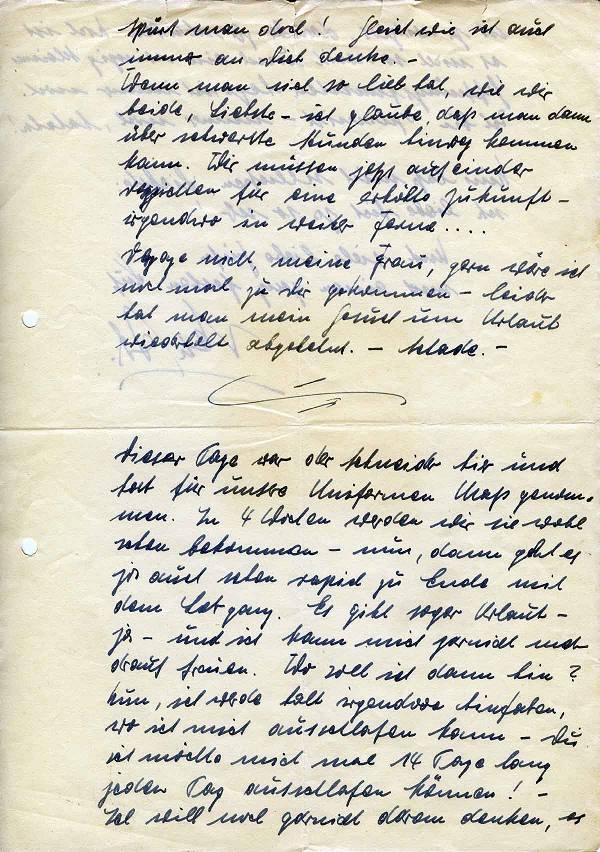 spürt man doch! Gleich wie ich auch
immer an Dich denke. –
Wenn man sich so lieb hat, wie wir
beide, Liebste – ich glaube, daß man dann
über schwerste Stunden hinweg kommen
kann. Wir müssen jetzt aufeinander
verzichten für eine erhöhte Zukunft –
irgendwo in weiter Ferne....
Verzage nicht, meine Frau, gern wäre ich
noch mal zu Dir gekommen – leider
hat man mein Gesuch um Urlaub
wiederholt abgelehnt. – Schade. –
Dieser Tage war der Schneider hier und
hat für unsre Uniformen Mass genom-
men. In 4 Wochen werden wir sie wohl
schon bekommen – nun, dann geht es
ja auch schon rapid zu Ende mit
dem Lehrgang. Es gibt sogar Urlaub –
ja – und ich kann mich garnicht mehr
drauf freuen. Wo soll ich dann hin?
Nun, ich werde halt irgendwo hinfahren,
wo ich mich ausschlafen kann – Du
ich möchte mich mal 14 Tage lang
jeden Tag ausschlafen können! –
Ich will noch garnicht daran denken, es